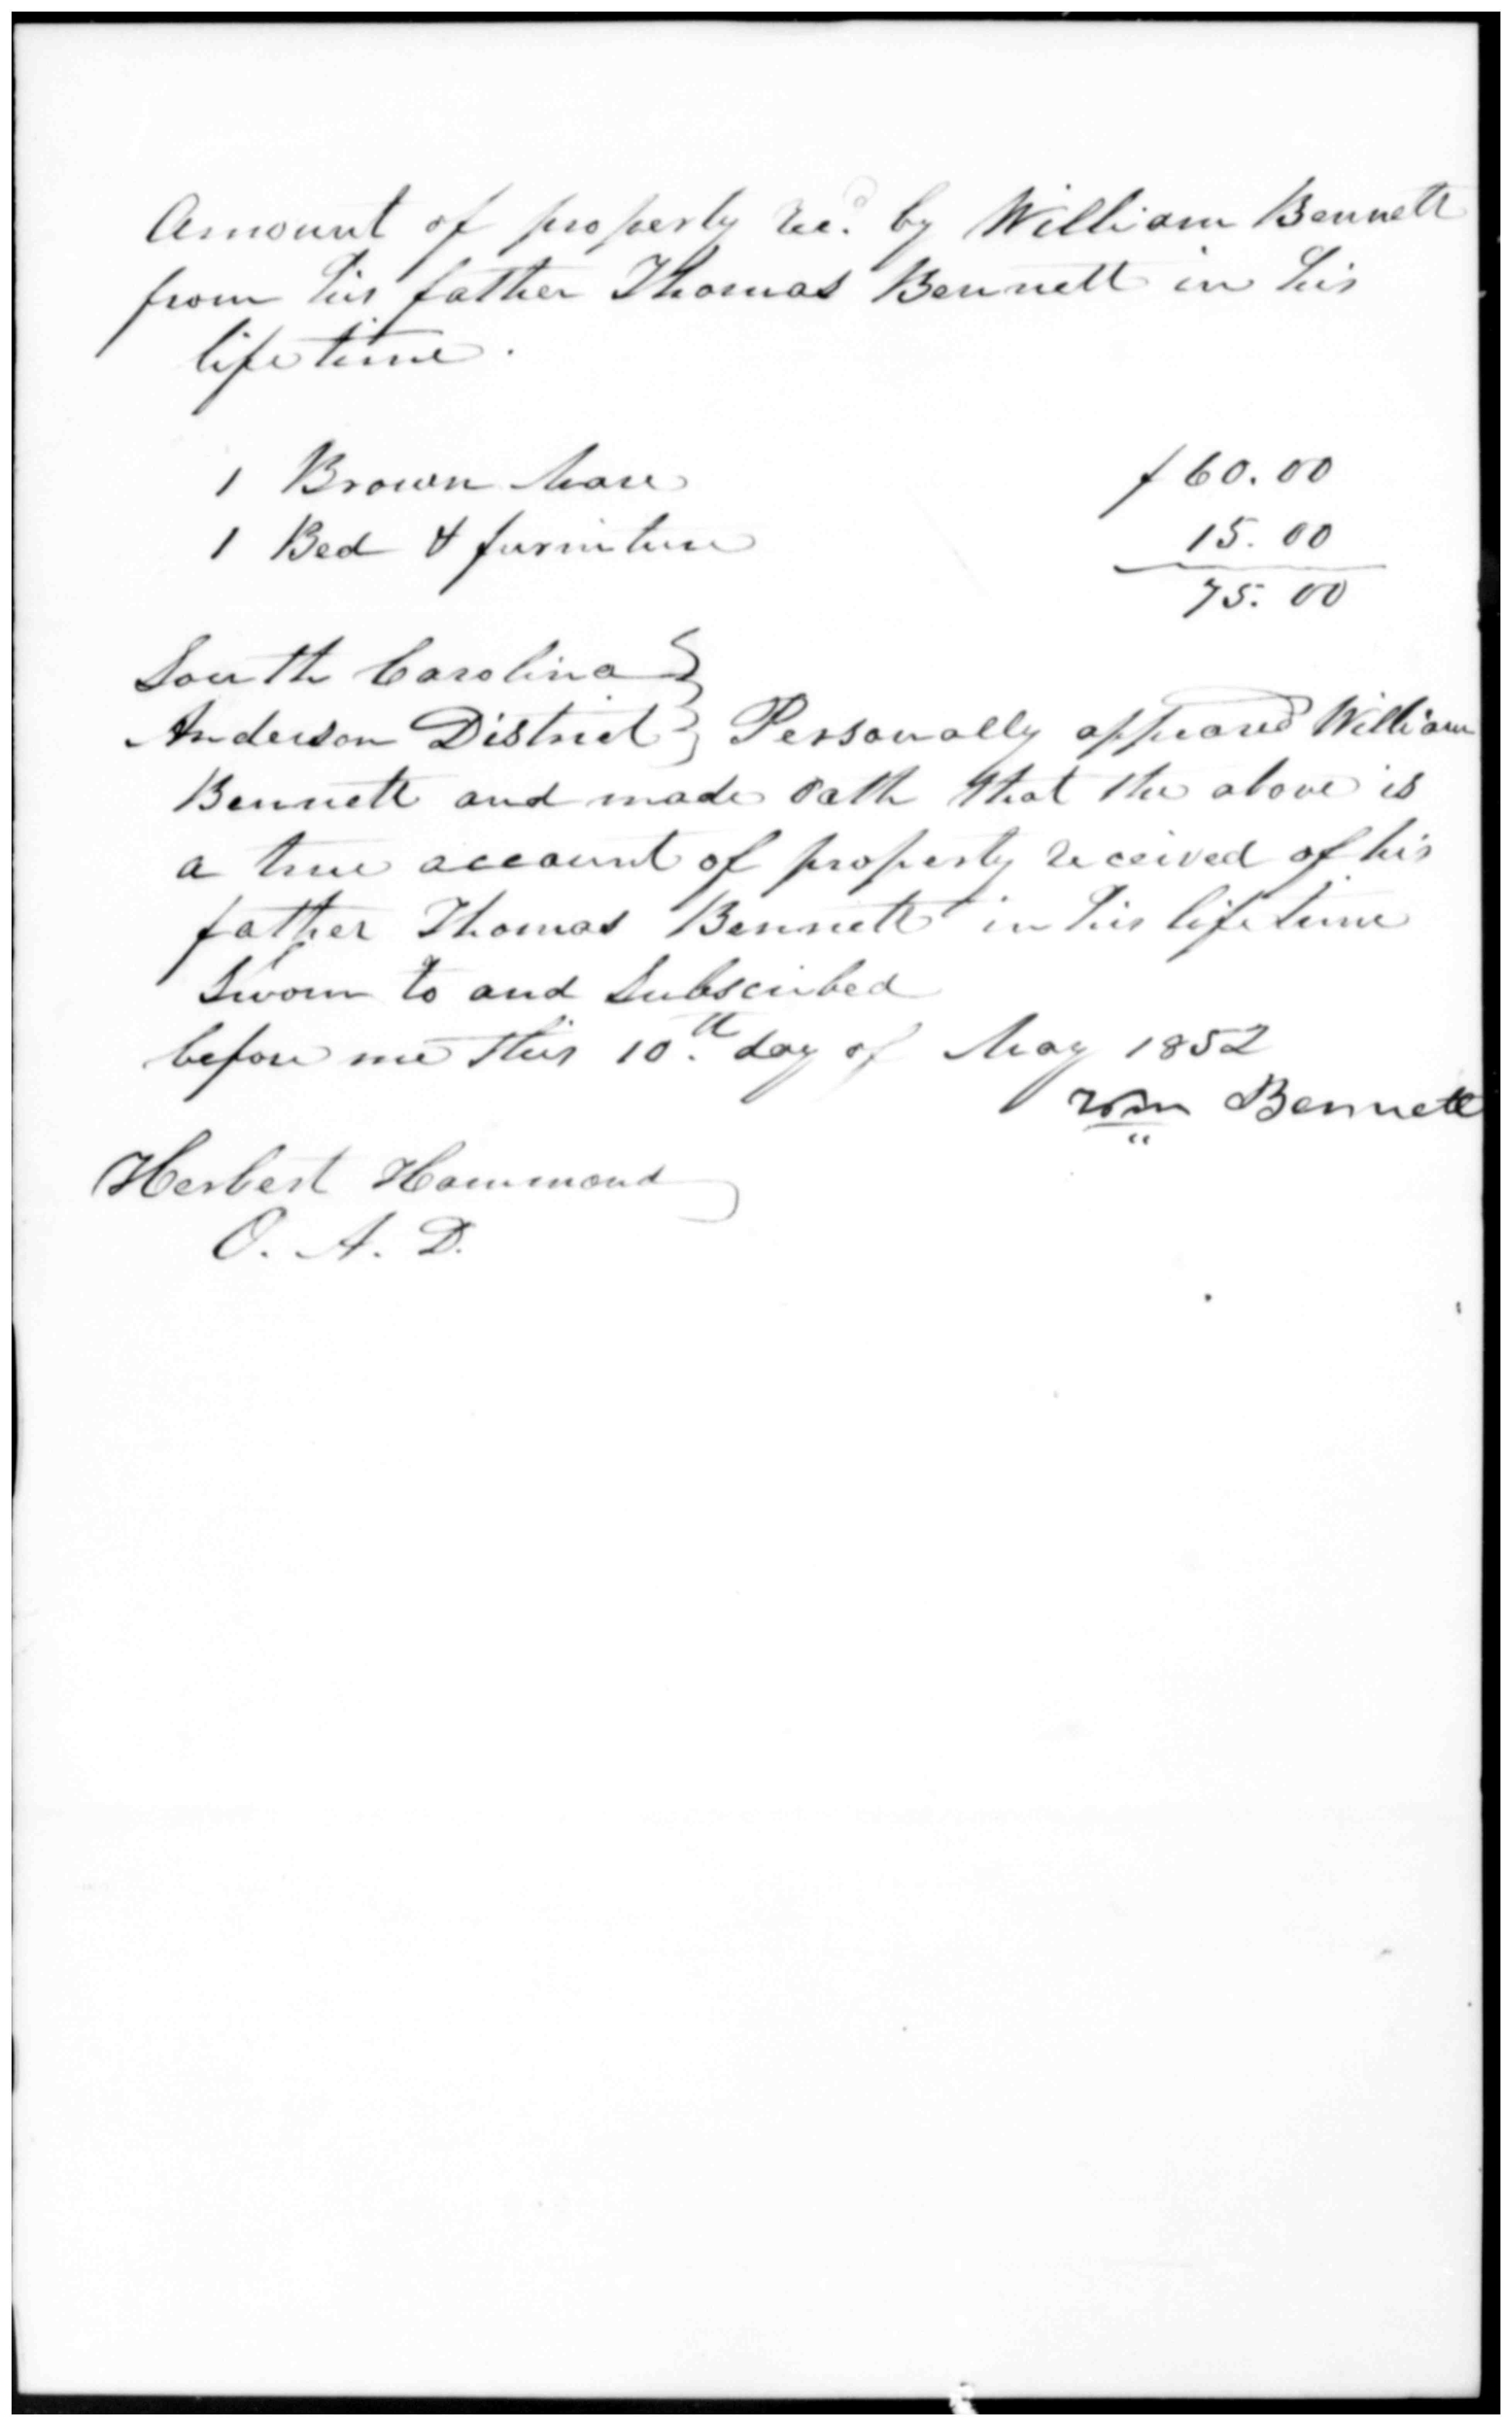 Amount of property Rec.d by William Bennett
from his father Thomas Bennett in his
life time.
1 Brown Mare $60.00
1 Bed & furniture 15.00
75.00
South Carolina }
Anderson District } Personally appeared William
Bennett and made oath that the above is
a true account of property received of his
father Thomas Bennett in his life time
Sworn to and Subscribed
before me this 10.th day of May 1852
Wm Bennett
Herbert Hammond
O. A. D.